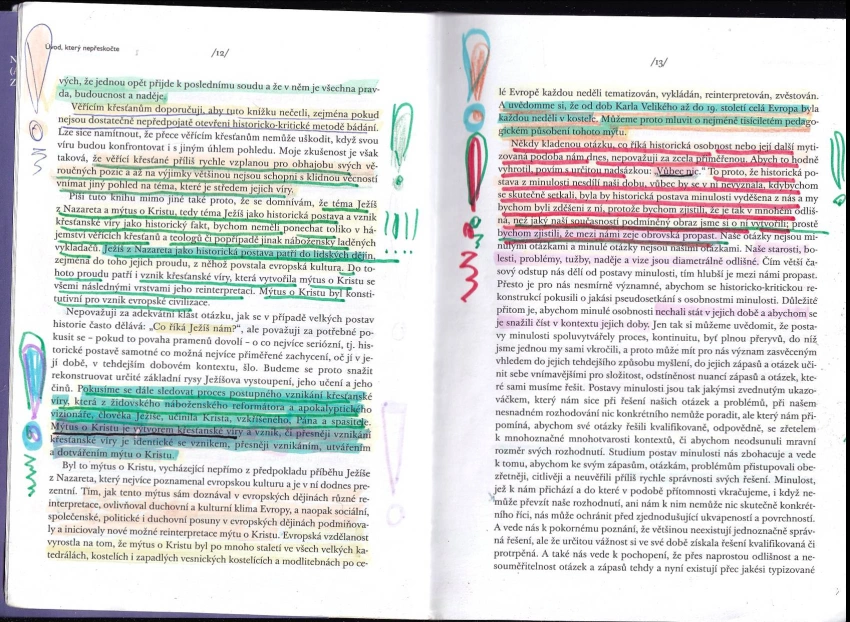 Úvod, který nepřeskočte
/12/
vých, že jednou opět přijde k poslednímu soudu a že v něm je všechna prav-
da, budoucnost a naděje.
Věřícím křesťanům doporučuji, aby tuto knížku nečetli, zejména pokud
nejsou dostatečně nepředpojatě otevření historicko-kritické metodě bádání.
Lze sice namítnout, že přece věřícím křesťanům nemůže uškodit, když svou
víru budou konfrontovat i s jiným úhlem pohledu. Moje zkušenost je však
taková, že věřící křesťané příliš rychle vzplanou pro obhajobu svých vě-
roučných pozic a až na výjimky většinou nejsou schopni s klidnou věcností
vnímat jiný pohled na téma, které je středem jejich víry.
Píši tuto knihu mimo jiné také proto, že se domnívám, že téma Ježíš
z Nazareta a mýtus o Kristu, tedy téma Ježíš jako historická postava a vznik
křesťanské víry jako historický fakt, bychom neměli ponechat toliko v há-
jemství věřících křesťanů a teologů či popřípadě jinak nábožensky laděných
vykladačů. Ježíš z Nazareta jako historická postava patří do lidských dějin,
zejména do toho jejich proudu, z něhož povstala evropská kultura. Do to-
hoto proudu patří i vznik křesťanské víry, která vytvořila mýtus o Kristu se
všemi následnými vrstvami jeho reinterpretací. Mýtus o Kristu byl konsti-
tutivní pro vznik evropské civilizace.
Nepovažuji za adekvátní klást otázku, jak se v případě velkých postav
historie často dělává: „Co říká Ježíš nám?“, ale považuji za potřebné po-
kusit se – pokud to povaha pramenů dovolí – o co nejvíce seriózní, tj. his-
torické postavě samotné co možná nejvíce přiměřené zachycení, oč jí v je-
jí době, v tehdejším dobovém kontextu, šlo. Budeme se proto snažit
rekonstruovat určité základní rysy Ježíšova vystoupení, jeho učení a jeho
činů. Pokusíme se dále sledovat proces postupného vznikání křesťanské
víry, která z židovského náboženského reformátora a apokalyptického
vizionáře, člověka Ježíše, učinila Krista, vzkříšeného, Pána a spasitele.
Mýtus o Kristu je výtvorem křesťanské víry a vznik, či přesněji vznikání
křesťanské víry je identické se vznikem, přesněji vznikáním, utvářením
a dotvářením mýtu o Kristu.
Byl to mýtus o Kristu, vycházející nepřímo z předpokladu příběhu Ježíše
z Nazareta, který nejvíce poznamenal evropskou kulturu a je v ní dodnes pre-
zentní. Tím, jak tento mýtus sám doznával v evropských dějinách různé re-
interpretace, ovlivňoval duchovní a kulturní klima Evropy, a naopak sociální,
společenské, politické i duchovní posuny v evropských dějinách podmiňova-
ly a iniciovaly nové možné reinterpretace mýtu o Kristu. Evropská vzdělanost
vyrostla na tom, že mýtus o Kristu byl po mnoho staletí ve všech velkých ka-
tedrálách, kostelích i zapadlých vesnických kostelících a modlitebnách po ce-
/13/
lé Evropě každou neděli tematizován, vykládán, reinterpretován, zvěstován.
A uvědomme si, že od dob Karla Velikého až do 19. století celá Evropa byla
každou neděli v kostele. Můžeme proto mluvit o nejméně tisíciletém pedago-
gickém působení tohoto mýtu.
Někdy kladenou otázku, co říká historická osobnost nebo její další myti-
zovaná podoba nám dnes, nepovažuji za zcela přiměřenou. Abych to hodně
vyhrotil, povím s určitou nadsázkou: „Vůbec nic.“ To proto, že historická po-
stava z minulosti nesdílí naši dobu, vůbec by se v ní nevyznala, kdybychom
se skutečně setkali, byla by historická postava minulosti vyděšena z nás a my
bychom byli zděšeni z ní, protože bychom zjistili, že je tak v mnohém odliš-
ná, než jaký naší současností podmíněný obraz jsme si o ní vytvořili; prostě
bychom zjistili, že mezi námi zeje obrovská propast. Naše otázky nejsou mi-
nulými otázkami a minulé otázky nejsou našimi otázkami. Naše starosti, bo-
lesti, problémy, tužby, naděje a vize jsou diametrálně odlišné. Čím větší ča-
sový odstup nás dělí od postavy minulosti, tím hlubší je mezi námi propast.
Přesto je pro nás nesmírně významné, abychom se historicko-kritickou re-
konstrukcí pokusili o jakási pseudosetkání s osobnostmi minulosti. Důležité
přitom je, abychom minulé osobnosti nechali stát v jejich době a abychom se
je snažili číst v kontextu jejich doby. Jen tak si můžeme uvědomit, že posta-
vy minulosti spoluvytvářely proces, kontinuitu, byť plnou přeryvů, do níž
jsme jednou my sami vkročili, a proto může mít pro nás význam zasvěceným
vhledem do jejich tehdejšího způsobu myšlení, do jejich zápasů a otázek uči-
nit sebe vnímavějšími pro složitost, odstíněnost nuancí zápasů a otázek, kte-
ré sami musíme řešit. Postavy minulosti jsou tak jakýmsi zvednutým ukazo-
váčkem, který nám sice při řešení našich otázek a problémů, při našem
nesnadném rozhodování nic konkrétního nemůže poradit, ale který nám při-
pomíná, abychom své otázky řešili kvalifikovaně, odpovědně, se zřetelem
k mnohoznačné mnohotvarosti kontextů, či abychom neodsunuli mravní
rozměr svých rozhodnutí. Studium postav minulosti nás zbohacuje a vede
k tomu, abychom ke svým zápasům, otázkám, problémům přistupovali obe-
zřetněji, citlivěji a neuvěřili příliš rychle správnosti svých řešení. Minulost,
jež k nám přichází a do které v podobě přítomnosti vkračujeme, i když ne-
může převzít naše rozhodnutí, ani nám k nim nemůže nic skutečně konkrét-
ního říci, nás může ochránit před zjednodušující ukvapeností a povrchností.
A vede nás k pokornému poznání, že většinou neexistují jednoznačně správ-
ná řešení, ale že určitou vážnost si ve své době získala řešení kvalifikovaná či
protrpěná. A také nás vede k pochopení, že přes naprostou odlišnost a ne-
souměřitelnost otázek a zápasů tehdy a nyní existují přec jakési typizované